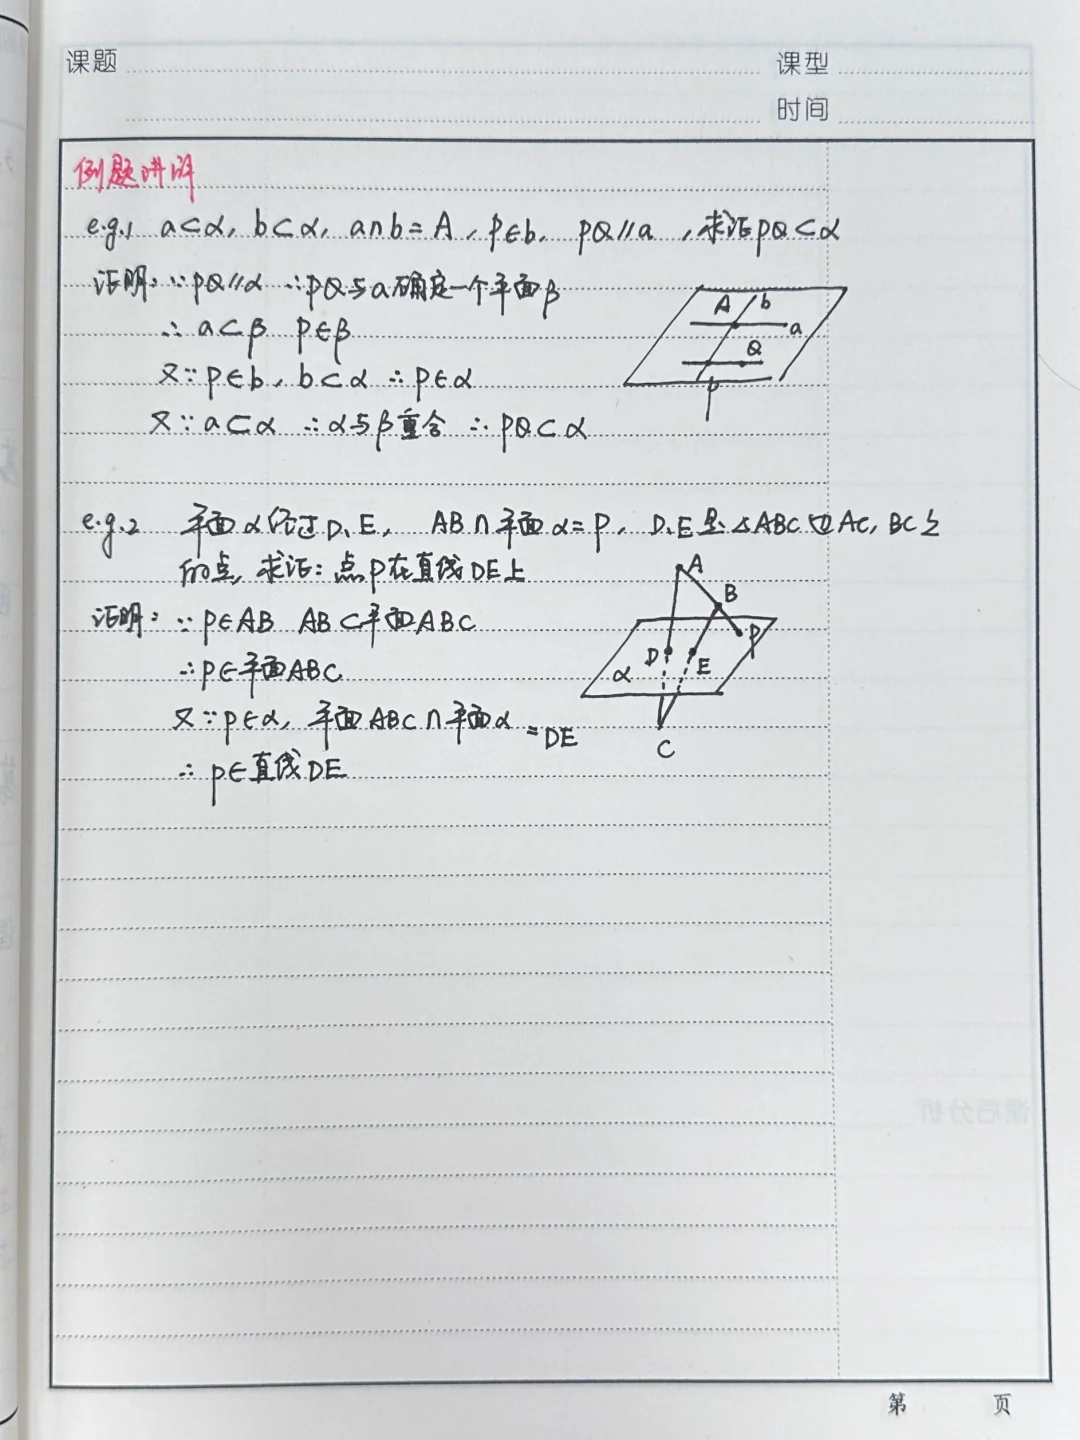 课题
课型
时间
例题讲解
e.g.1 a⊂α, b⊂α, a∩b=A, P∈b, PQ∥a, 求证PQ⊂α
证明: ∵PQ∥α ∴PQ与a确定一个平面β
∴a⊂β P∈β
又∵P∈b, b⊂α ∴P∈α
又∵a⊂α ∴α与β重合 ∴PQ⊂α
A b
a
Q
P
e.g.2 平面α经过D、E, AB∩平面α=P, D、E是△ABC边AC, BC上
的点, 求证: 点P在直线DE上
证明: ∵P∈AB AB⊂平面ABC
∴P∈平面ABC
又∵P∈α, 平面ABC∩平面α=DE
∴P∈直线DE
A
B
P
D E
α
C
课后分析
第 页